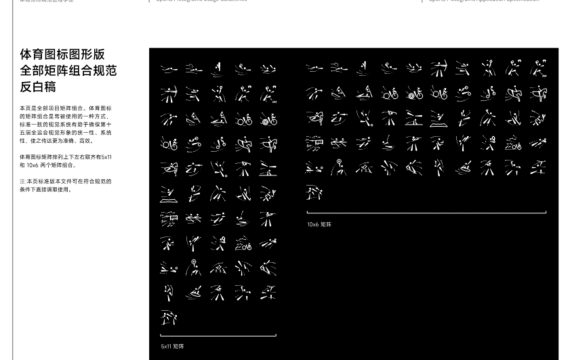 体育图标图形版
全部矩阵组合规范
反白稿
本页是全部项目矩阵组合。体育图标
的矩阵组合是常被使用的一种方式,
标准一致的规范系统有助于确保第十
五届全运会规范形象的统一性、系统
性,使之传达更为准确、高效。
体育图标矩阵排列上下左右联齐有5x11
和 10x6 两个矩阵组合。
※ 本页标准版本文件可在符合规范的
条件下直接调取使用。
10x6 矩阵
5x11 矩阵